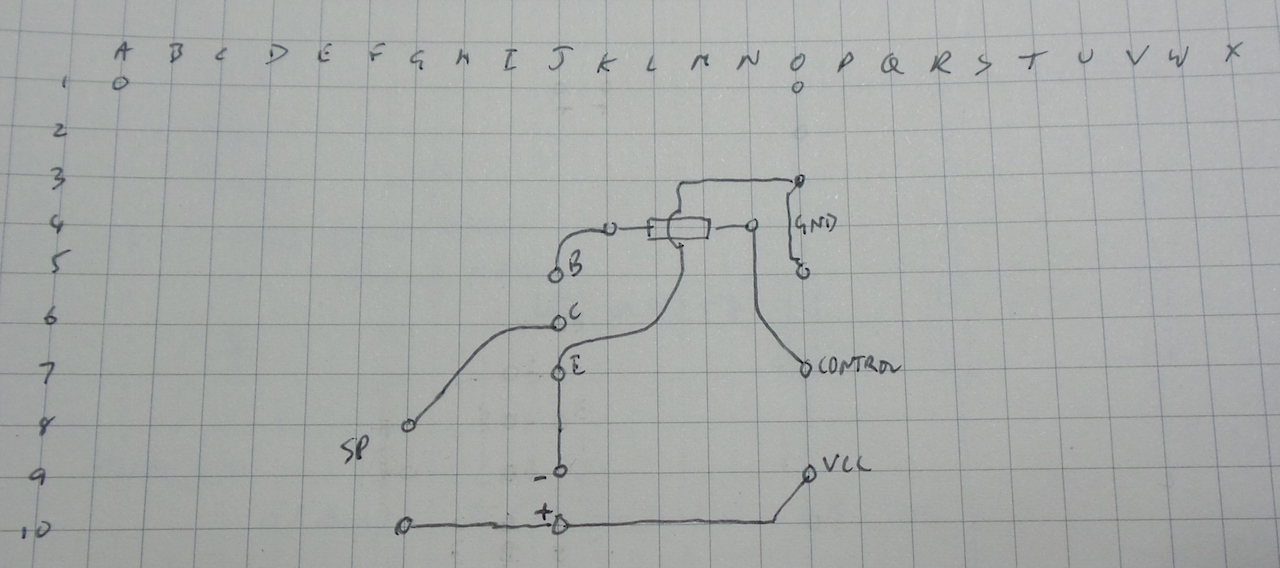 A B C D E F G H I J K L M N O P Q R S T U V W X
1
2
3
4 GND
5 B
6 C
7 E CONTROL
8
SP
9 - VCC
10 +